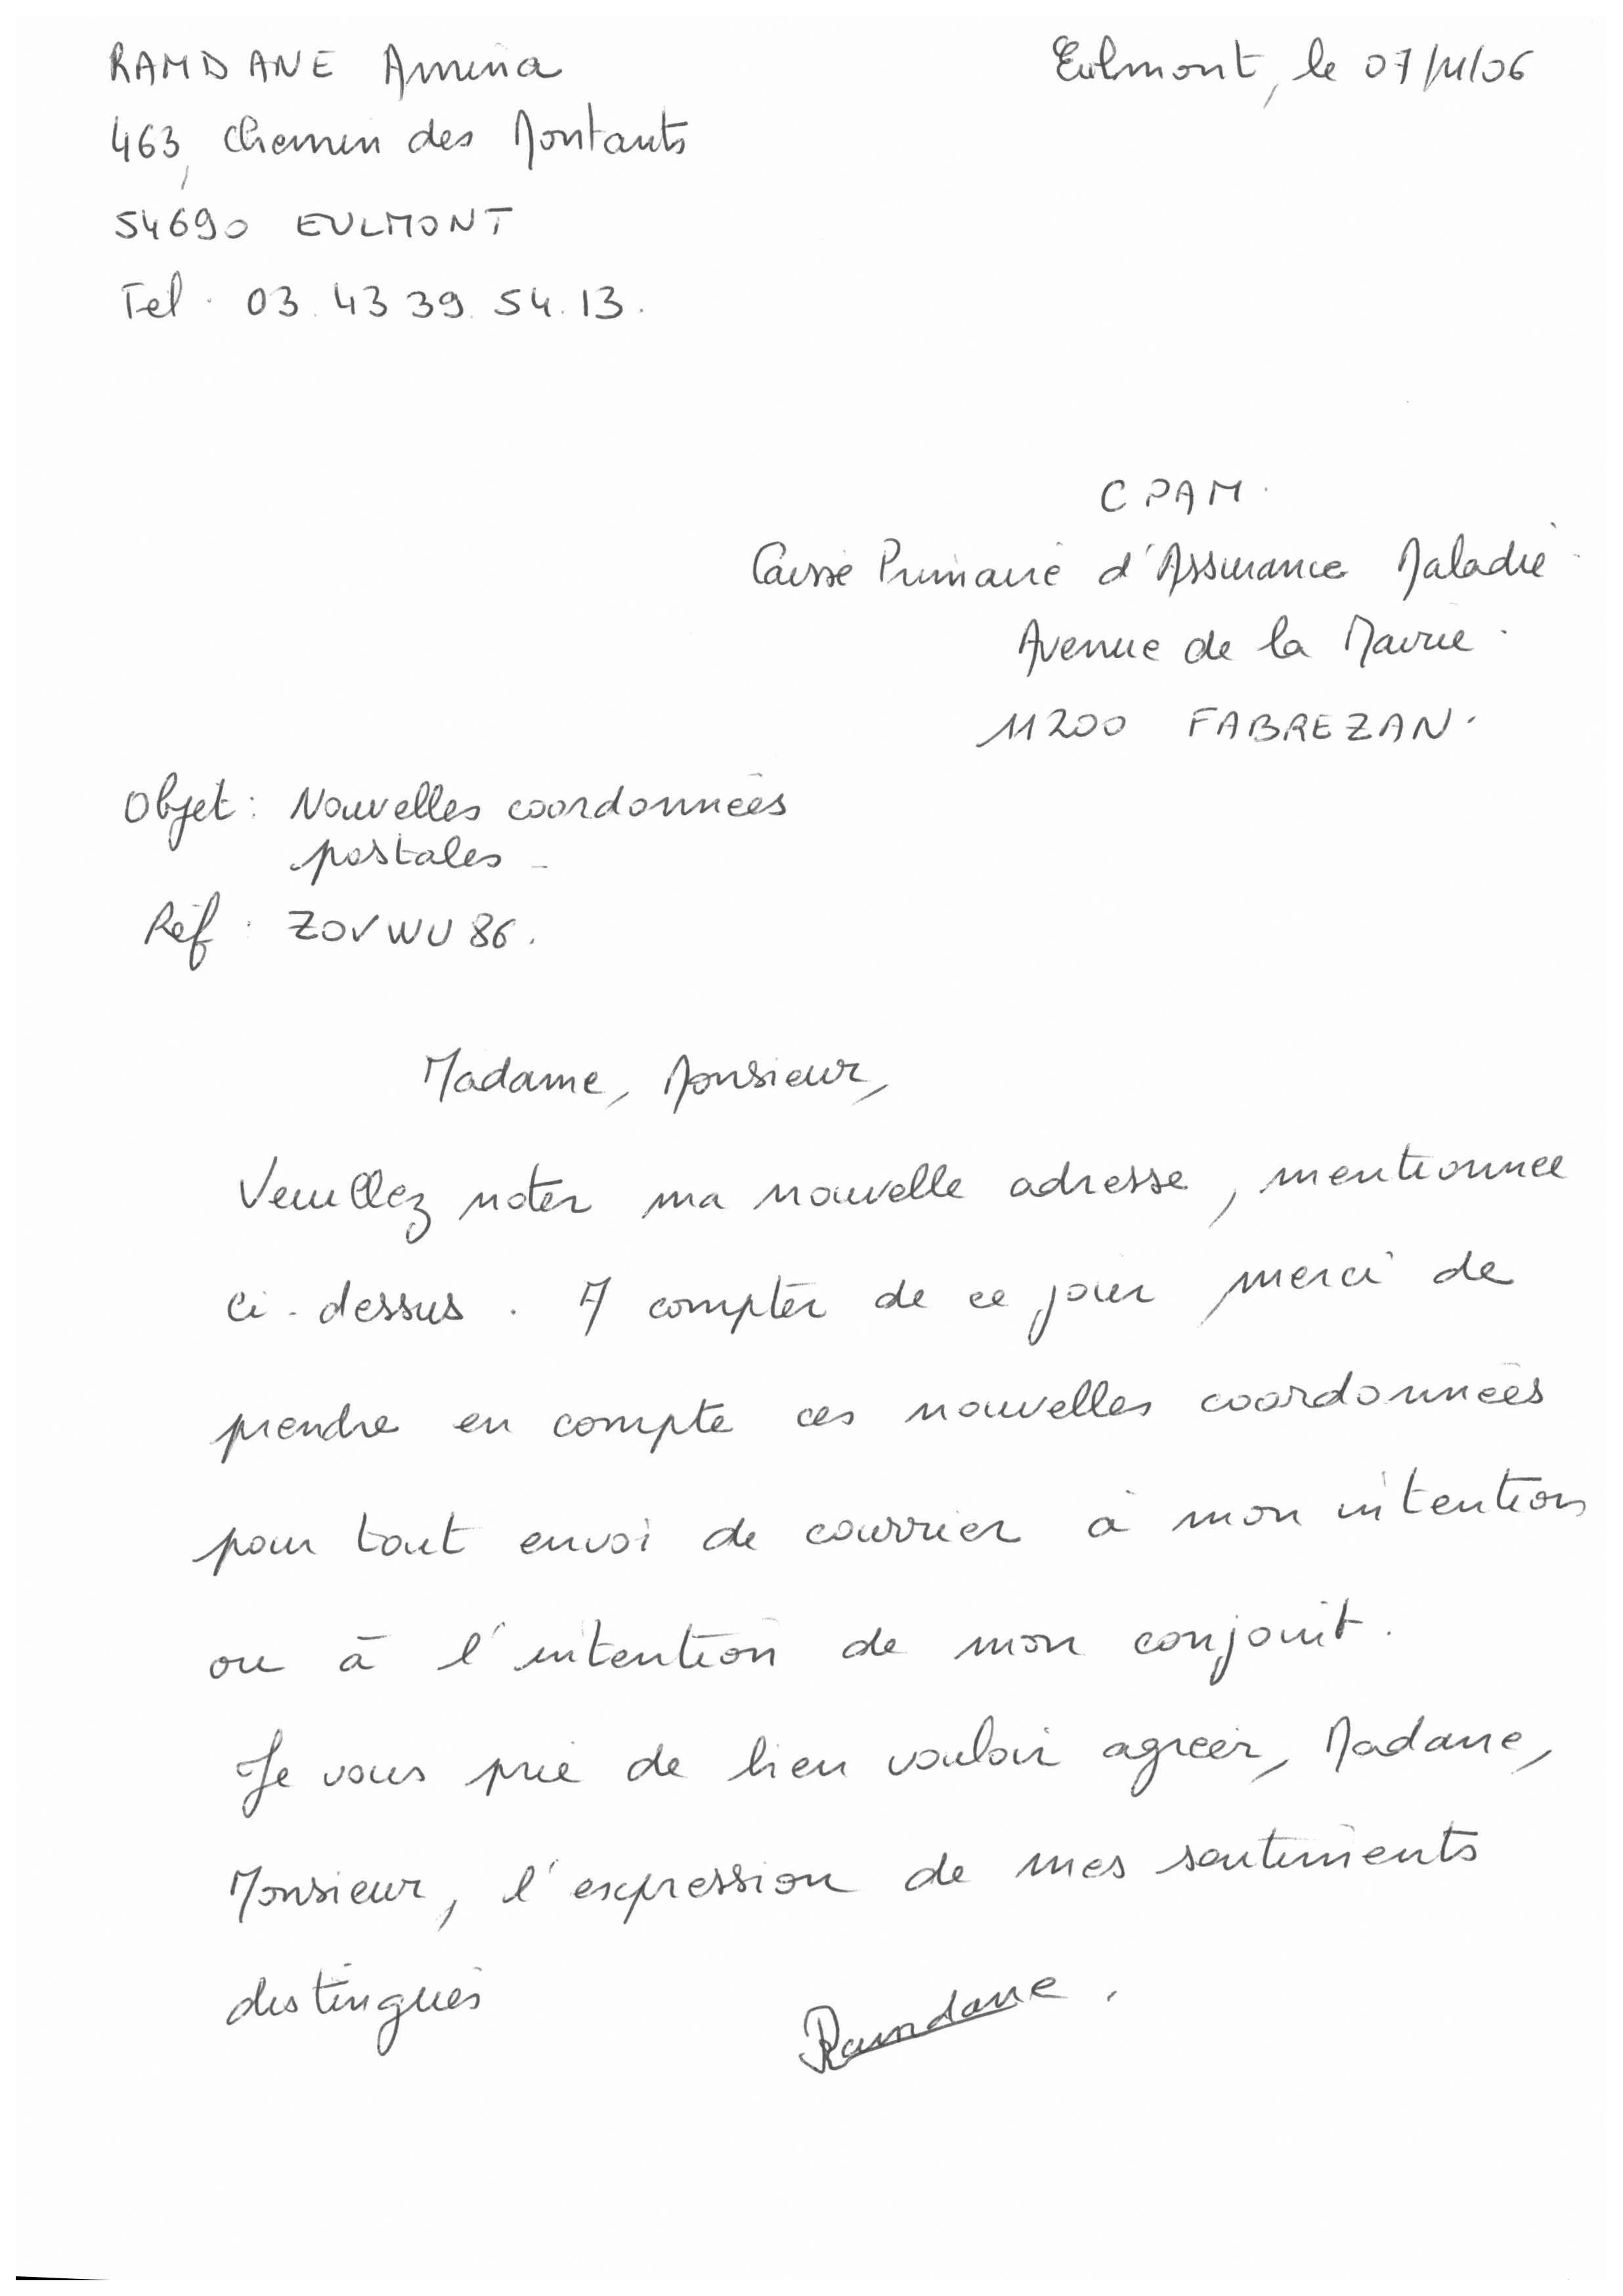 RAMDANE Amina
Eulmont, le 07/11/06
463, chemin des Montants
54690 EULMONT
Tel. 03.43.39.54.13.
CPAM.
Caisse Primaire d'Assurance Maladie
Avenue de la Mairie.
11200 FABREZAN.
Objet : Nouvelles coordonnées
postales -
Réf : ZOVWU86.
Madame, Monsieur,
Veuillez noter ma nouvelle adresse, mentionnée
ci-dessus. A compter de ce jour merci de
prendre en compte ces nouvelles coordonnées
pour tout envoi de courrier à mon intention
ou à l'intention de mon conjoint.
Je vous prie de bien vouloir agréer, Madame,
Monsieur, l'expression de mes sentiments
distingués
Ramdane.